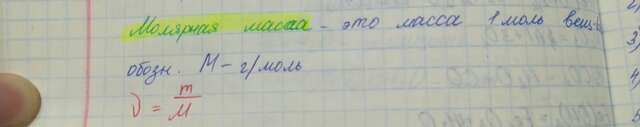 Молярная масса - это масса 1 моль вещ-
обозн. М - г/моль
ν = m/M
2)
3)
4)